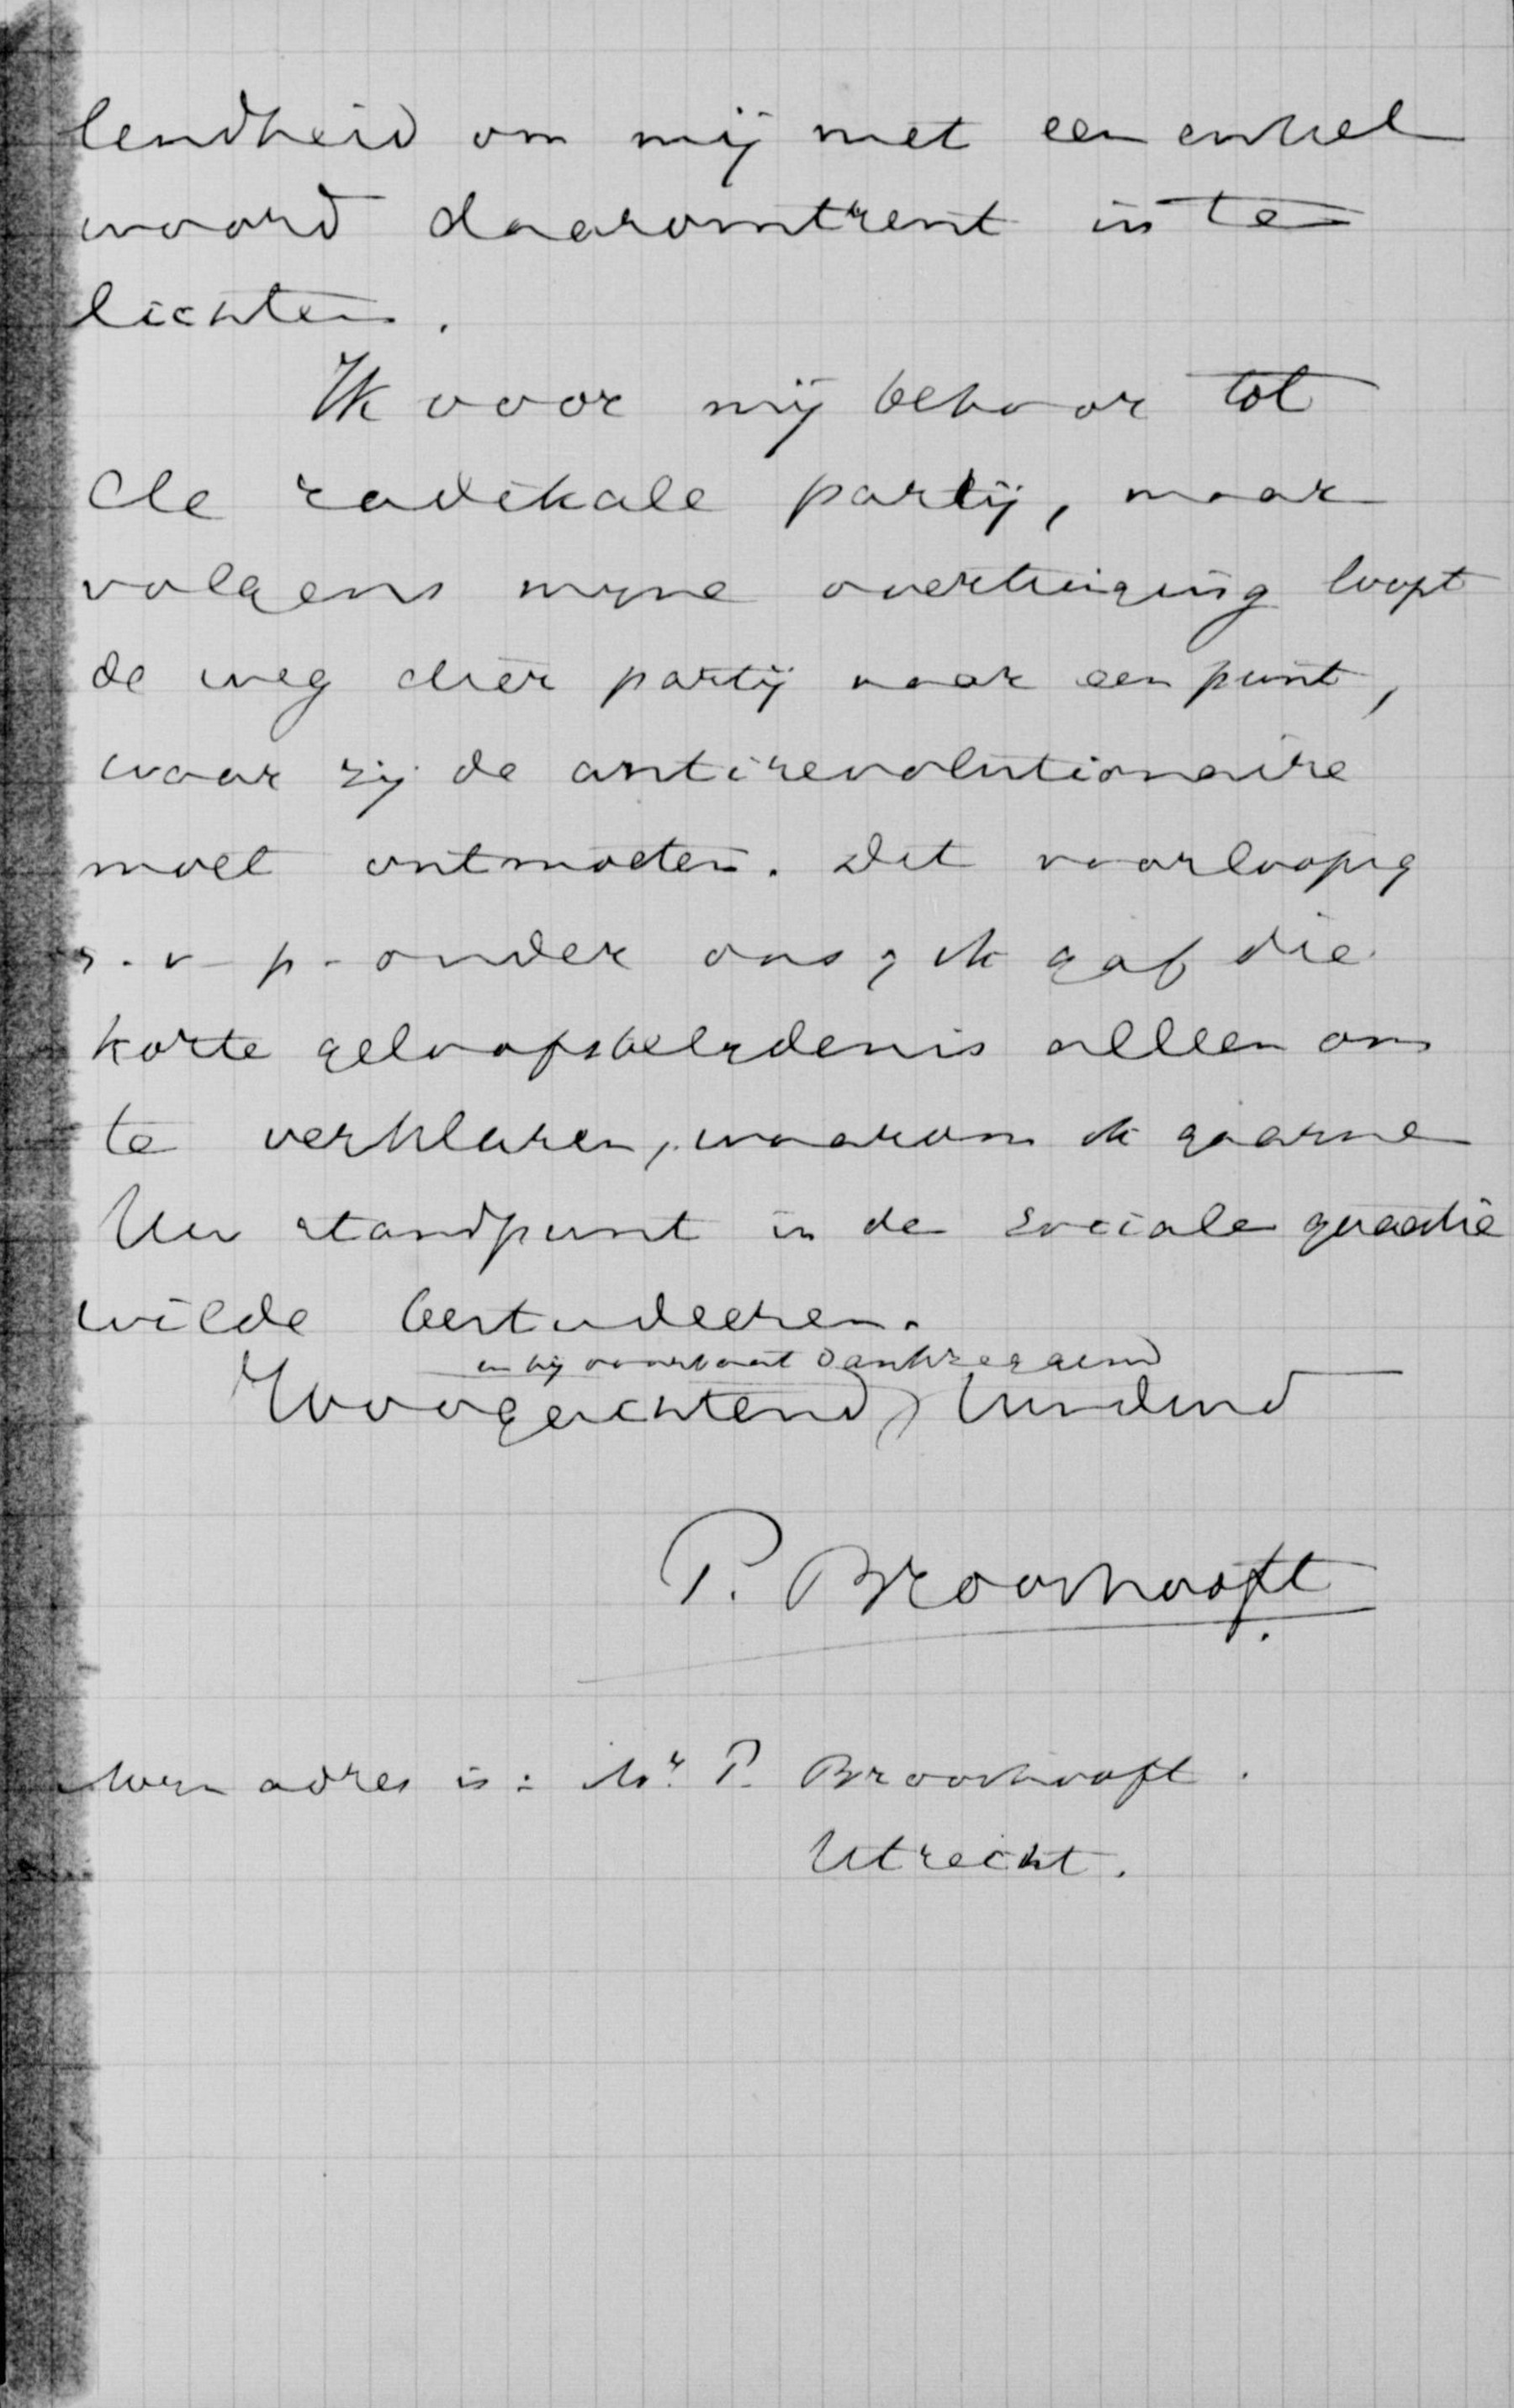 lendheid om mij met een enkel
woord daaromtrent in te
lichten.
Ik voor mij behoor tot
de radikale partij, maar
volgens myne overtuiging loopt
de weg dier partij naar een punt,
waar zij de antirevolutionaire
moet ontmoeten. Dit voorloopig
s.v.p. onder ons; ik gaf die
korte geloofsbelydenis alleen om
te verklaren, waarom ik gaarne
Uw standpunt in de sociale quaestie
wilde bestudeeren.
en bij voorbaat dankzeggend
Hoogachtend,
P. Brooshooft.
Myn adres is: Mr. P. Brooshooft.
Utrecht.